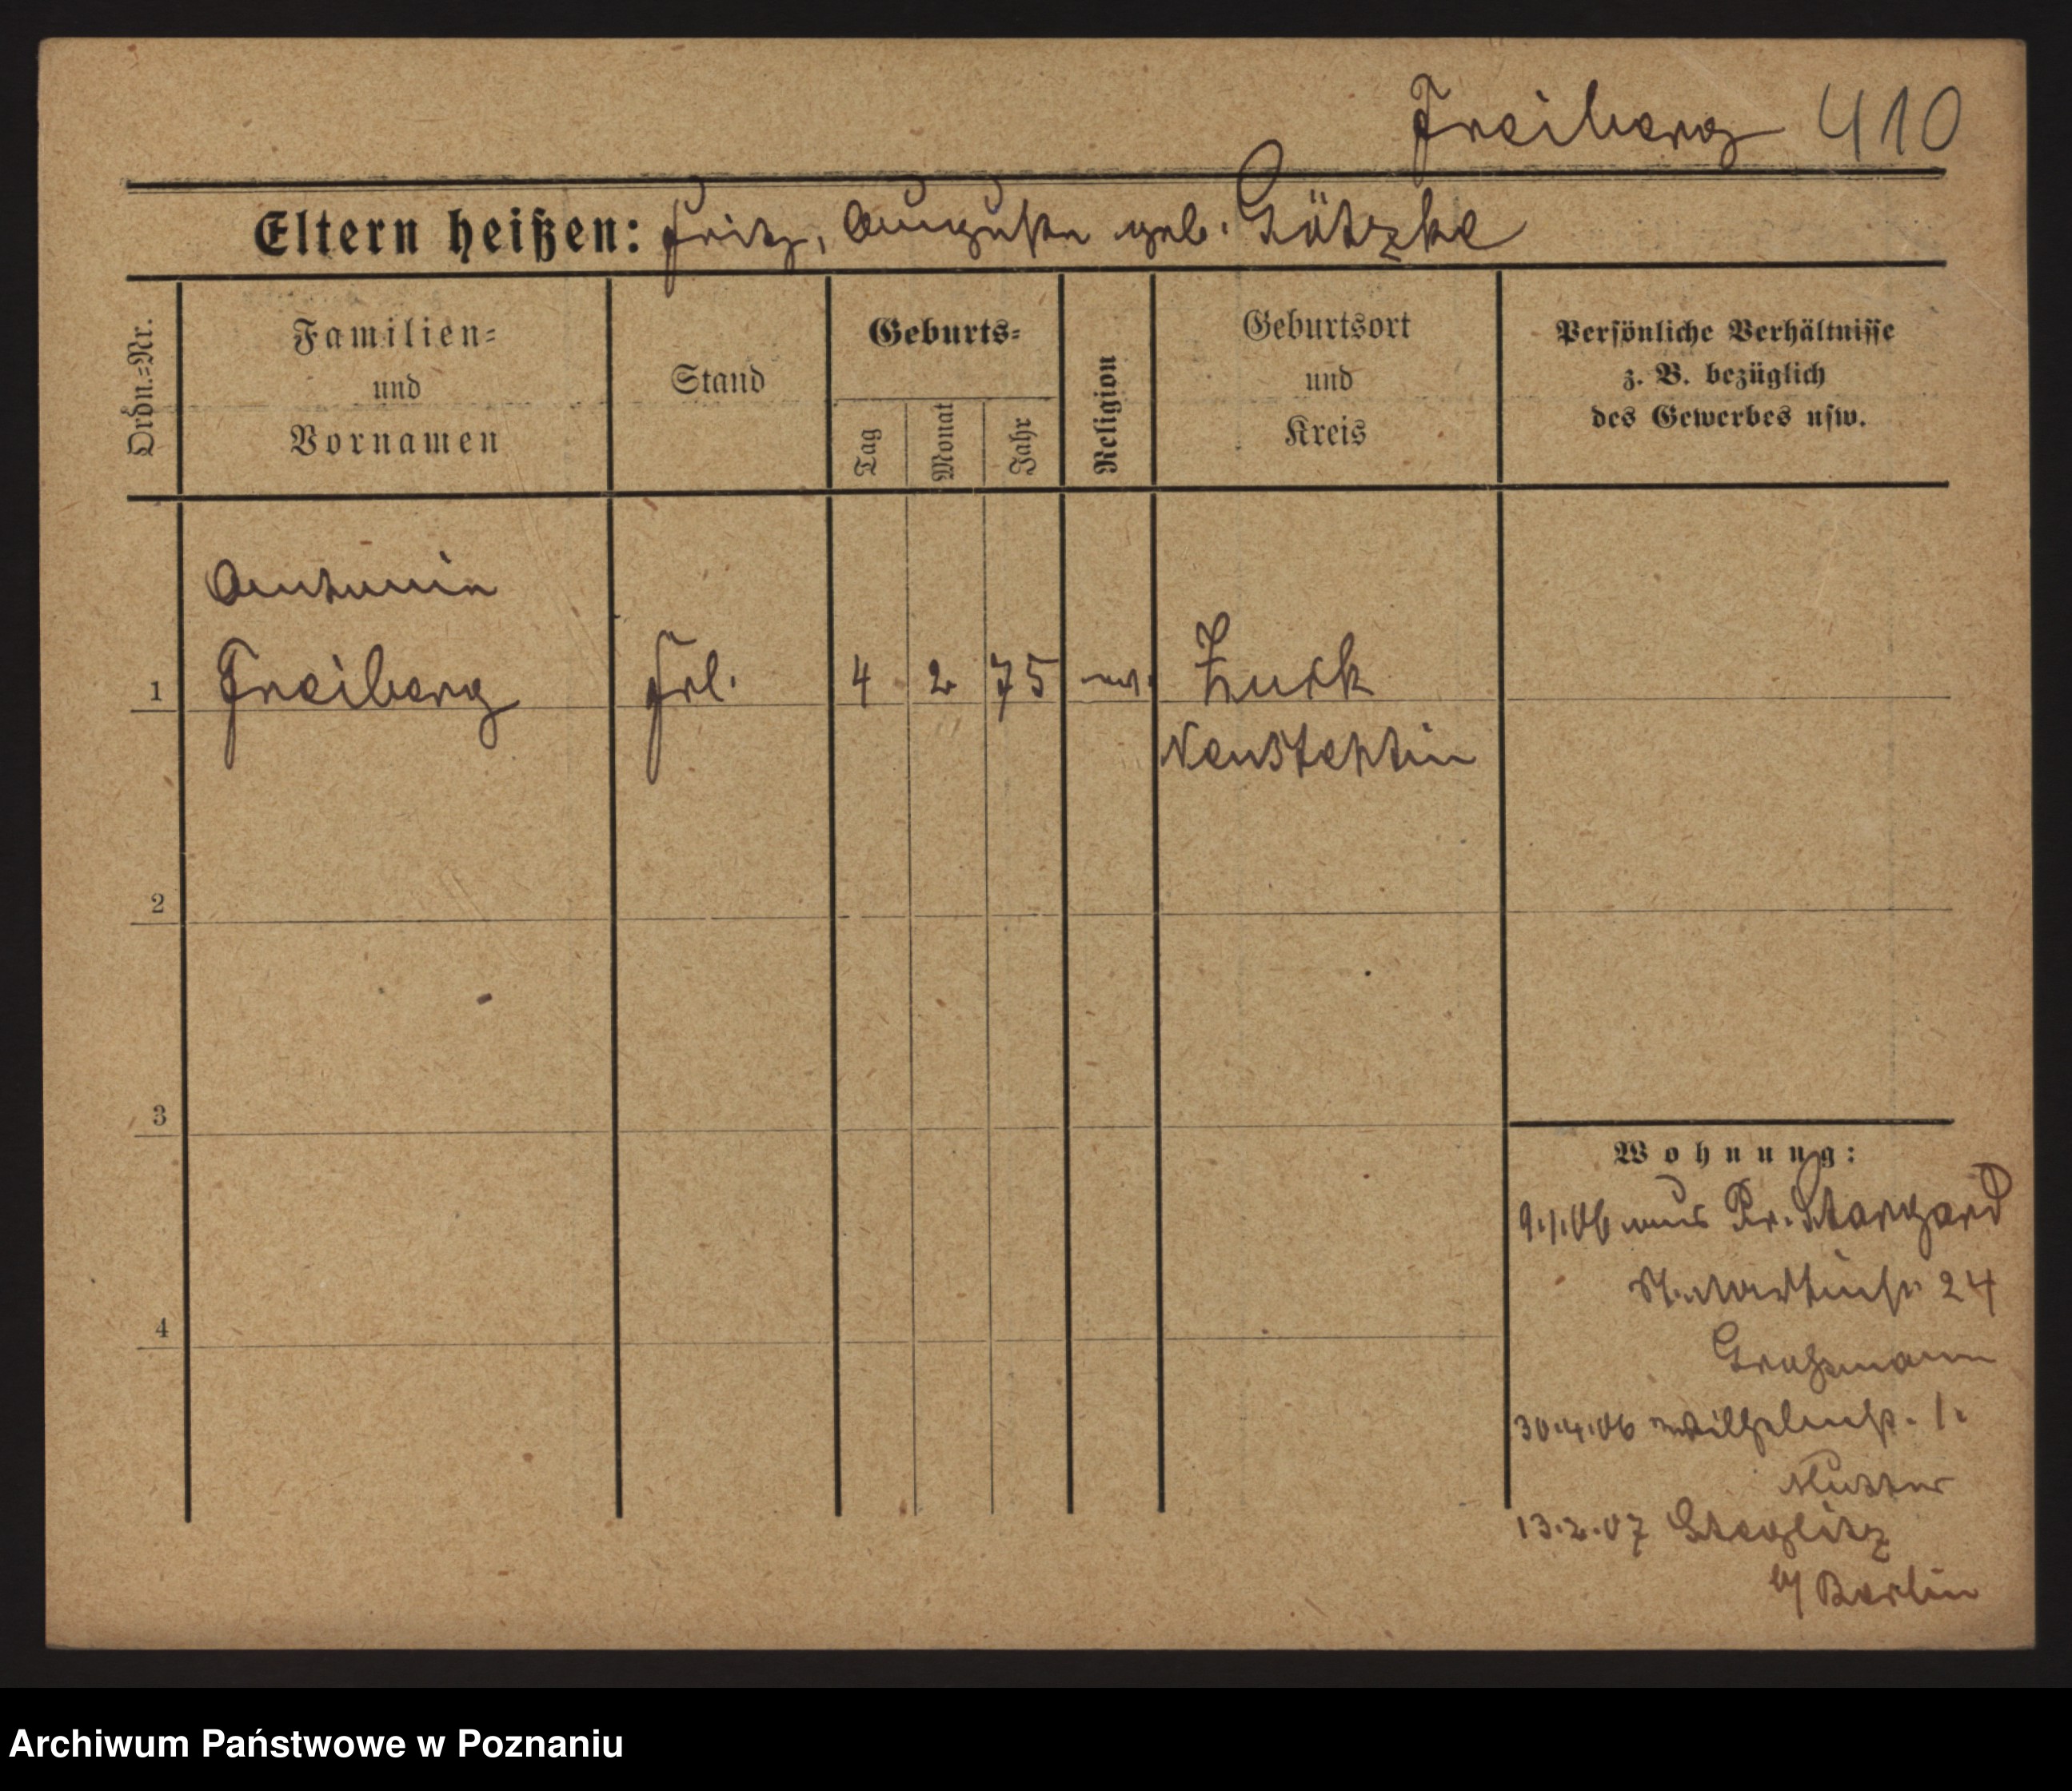 Freiberg 410
Eltern heißen: Fritz, Auguste geb. Götzke
Ordn.=Nr.
Familien=
und
Vornamen
Stand
Geburts=
Tag
Monat
Jahr
Religion
Geburtsort
und
Kreis
Persönliche Verhältnisse
z. B. bezüglich
des Gewerbes usw.
1
Freiberg
Frl. 4 2 75 ev.
Neustettin
2
3
4
Wohnung:
9.1.06 aus Pr. Stargard
St. Martinstr. 24
Graßmann
30.4.06 Wilhelmstr. 1.
13.2.07 Steglitz
b/ Berlin
Archiwum Państwowe w Poznaniu